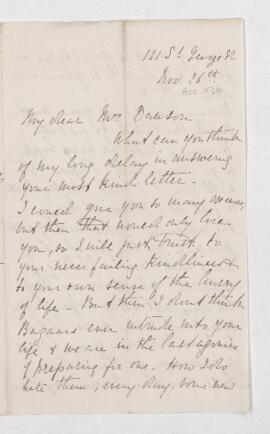 121 St. George St.
Nov. 26th
My dear Mrs Dawson
What can you think
of my long delay in answering
your most kind letter.
I could give you so many excuses,
but then that would only bore
you, so I will just trust to
your never failing kindliness &
to your own sense of the hurry
of life. But then I don't think
Bazaars ever intrude into your
life & we are in the last agonies
of preparing for one. How I do
hate them, every day, some new